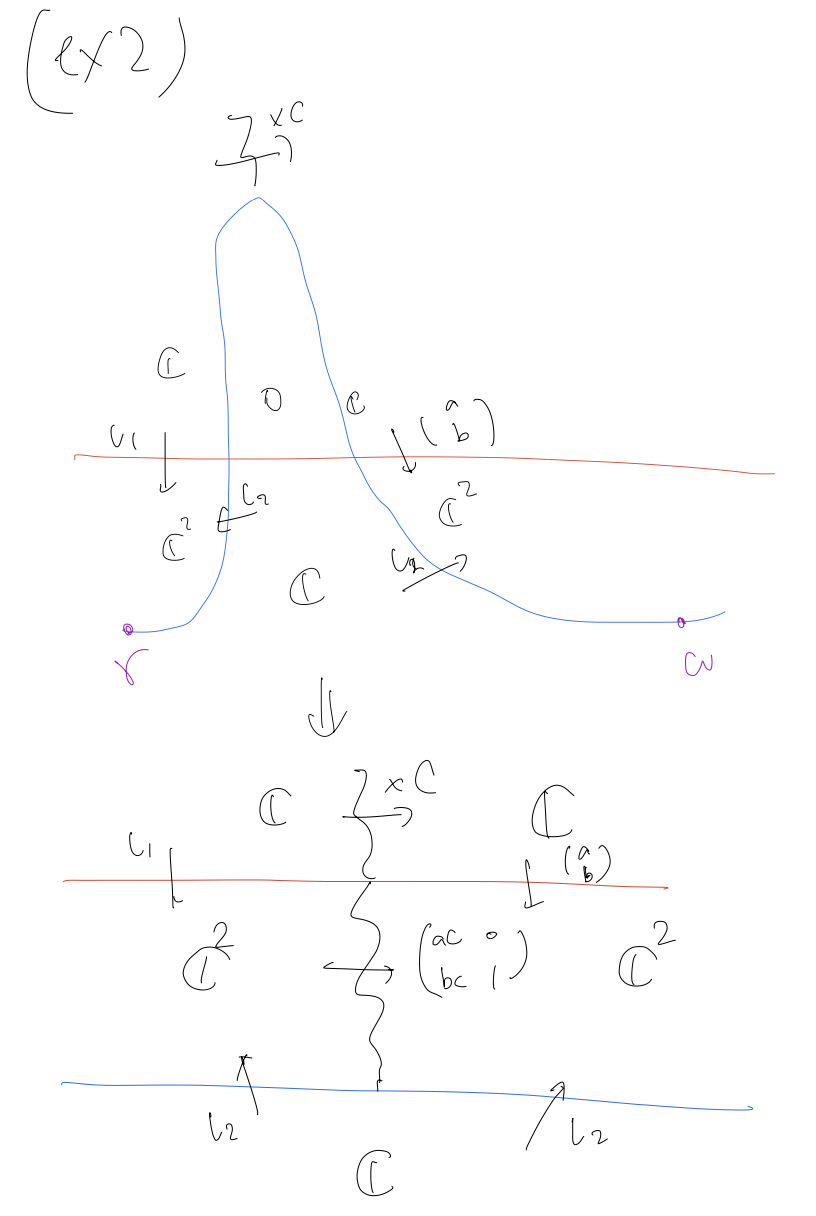 (ex2)
×C
ℂ
0
ℂ
ι₁
(a
b)
ι₂
ℂ²
ℂ²
ι₂
ℂ
γ
ω
⇓
ℂ
×C
ℂ
ι₁
(a
b)
ℂ²
(ac 0
bc 1)
ℂ²
ι₂
ι₂
ℂ